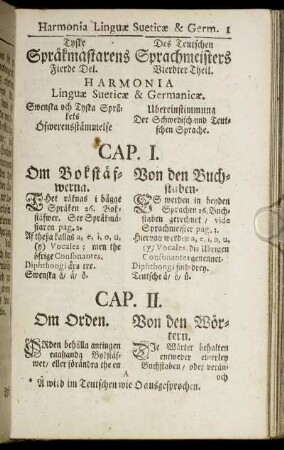 Harmonia Linguæ Sueticæ & Germ. 1
Tyske
Språkmästarens
Fierde Del.
Des Teutschen
Sprachmeisters
Vierdter Theil.
HARMONIA
Linguæ Sueticæ & Germanicæ.
Swenska och Tyska Språ-
kets
Öfwerensstämmelse
Ubereinstimmung
Der Schwedisch und Teut-
schen Sprache.
CAP. I.
Om Bokstäf-
werna.
THet räknas i bägge
Språken 26. Bok-
stäfwer. See Språkmä-
staren pag. 2.
Af thesa kallas a, e, i, o, u,
(y) Vocales; men the
öfrige Consonantes.
Diphthongi äro tre.
Swenska å/ ä/ ö.
Von den Buch-
staben.
ES werden in beyden
Sprachen 26. Buch-
staben gerechnet / vide
Sprachmeister pag. 1.
Hiervon werden a, e, i, o, u,
(y) Vocales, die übrigen
Consonantes genennet.
Diphthongi sind drey.
Teutsche å/ ö/ ü.
CAP. II.
Om Orden.
ORden behålla antingen
enahanda Bokstäf-
wer/ eller förändra the en
Von den Wör-
tern.
DIe Wörter behalten
entweder einerley
Buchstaben / oder verän-
A
och
* Å wird im Teutschen wie O ausgesprochen.